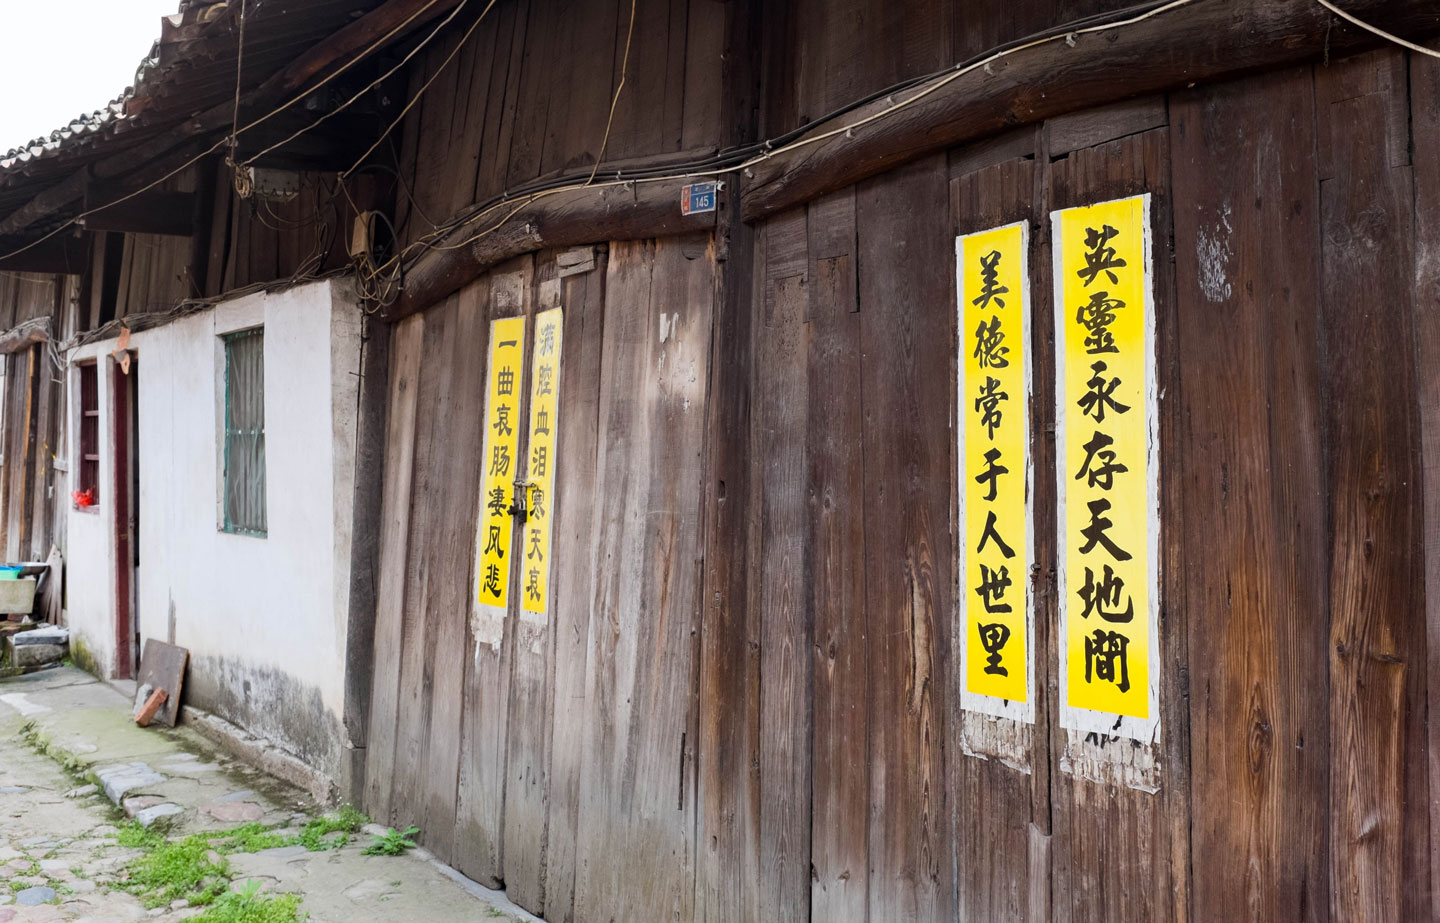 145
满腔血泪寒天哀
一曲哀肠凄风悲
英靈永存天地間
美德常于人世里